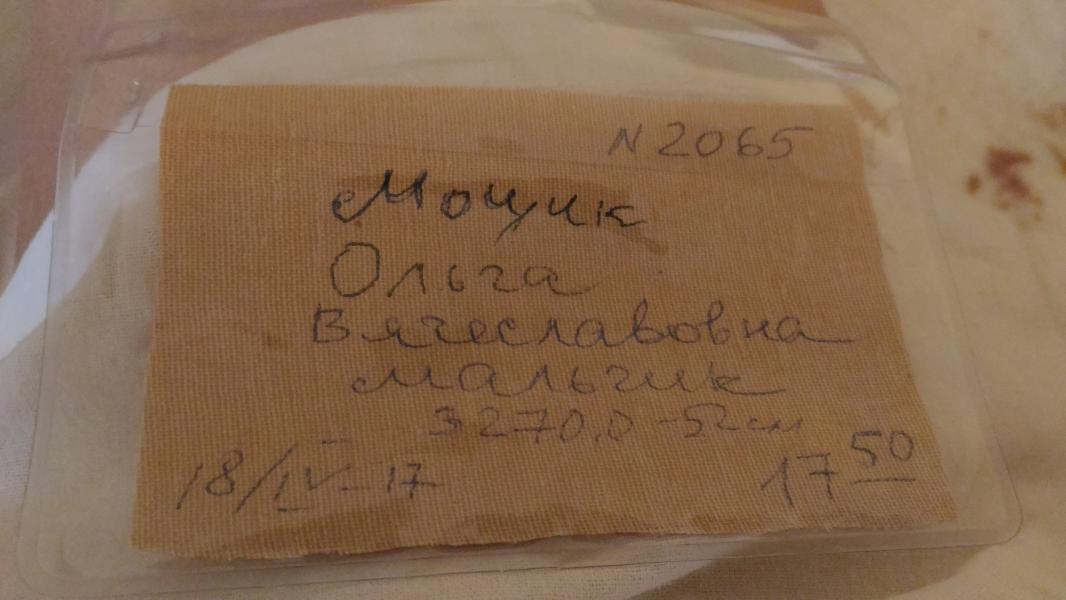 N 2065
Мощик
Ольга
Вячеславовна
мальчик
3270,0 - 52 см
18/IV-17 17 50